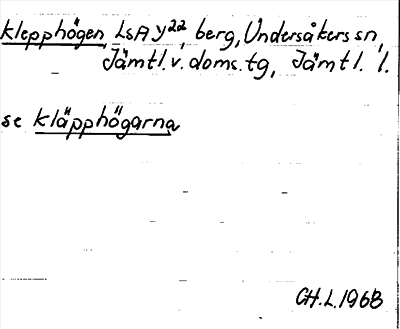 klepphögen, LSA Y22, berg, Undersåkers sn,
Jämtl. v. doms. tg, Jämtl. l.
se kläpphögarna
CH.L.1968